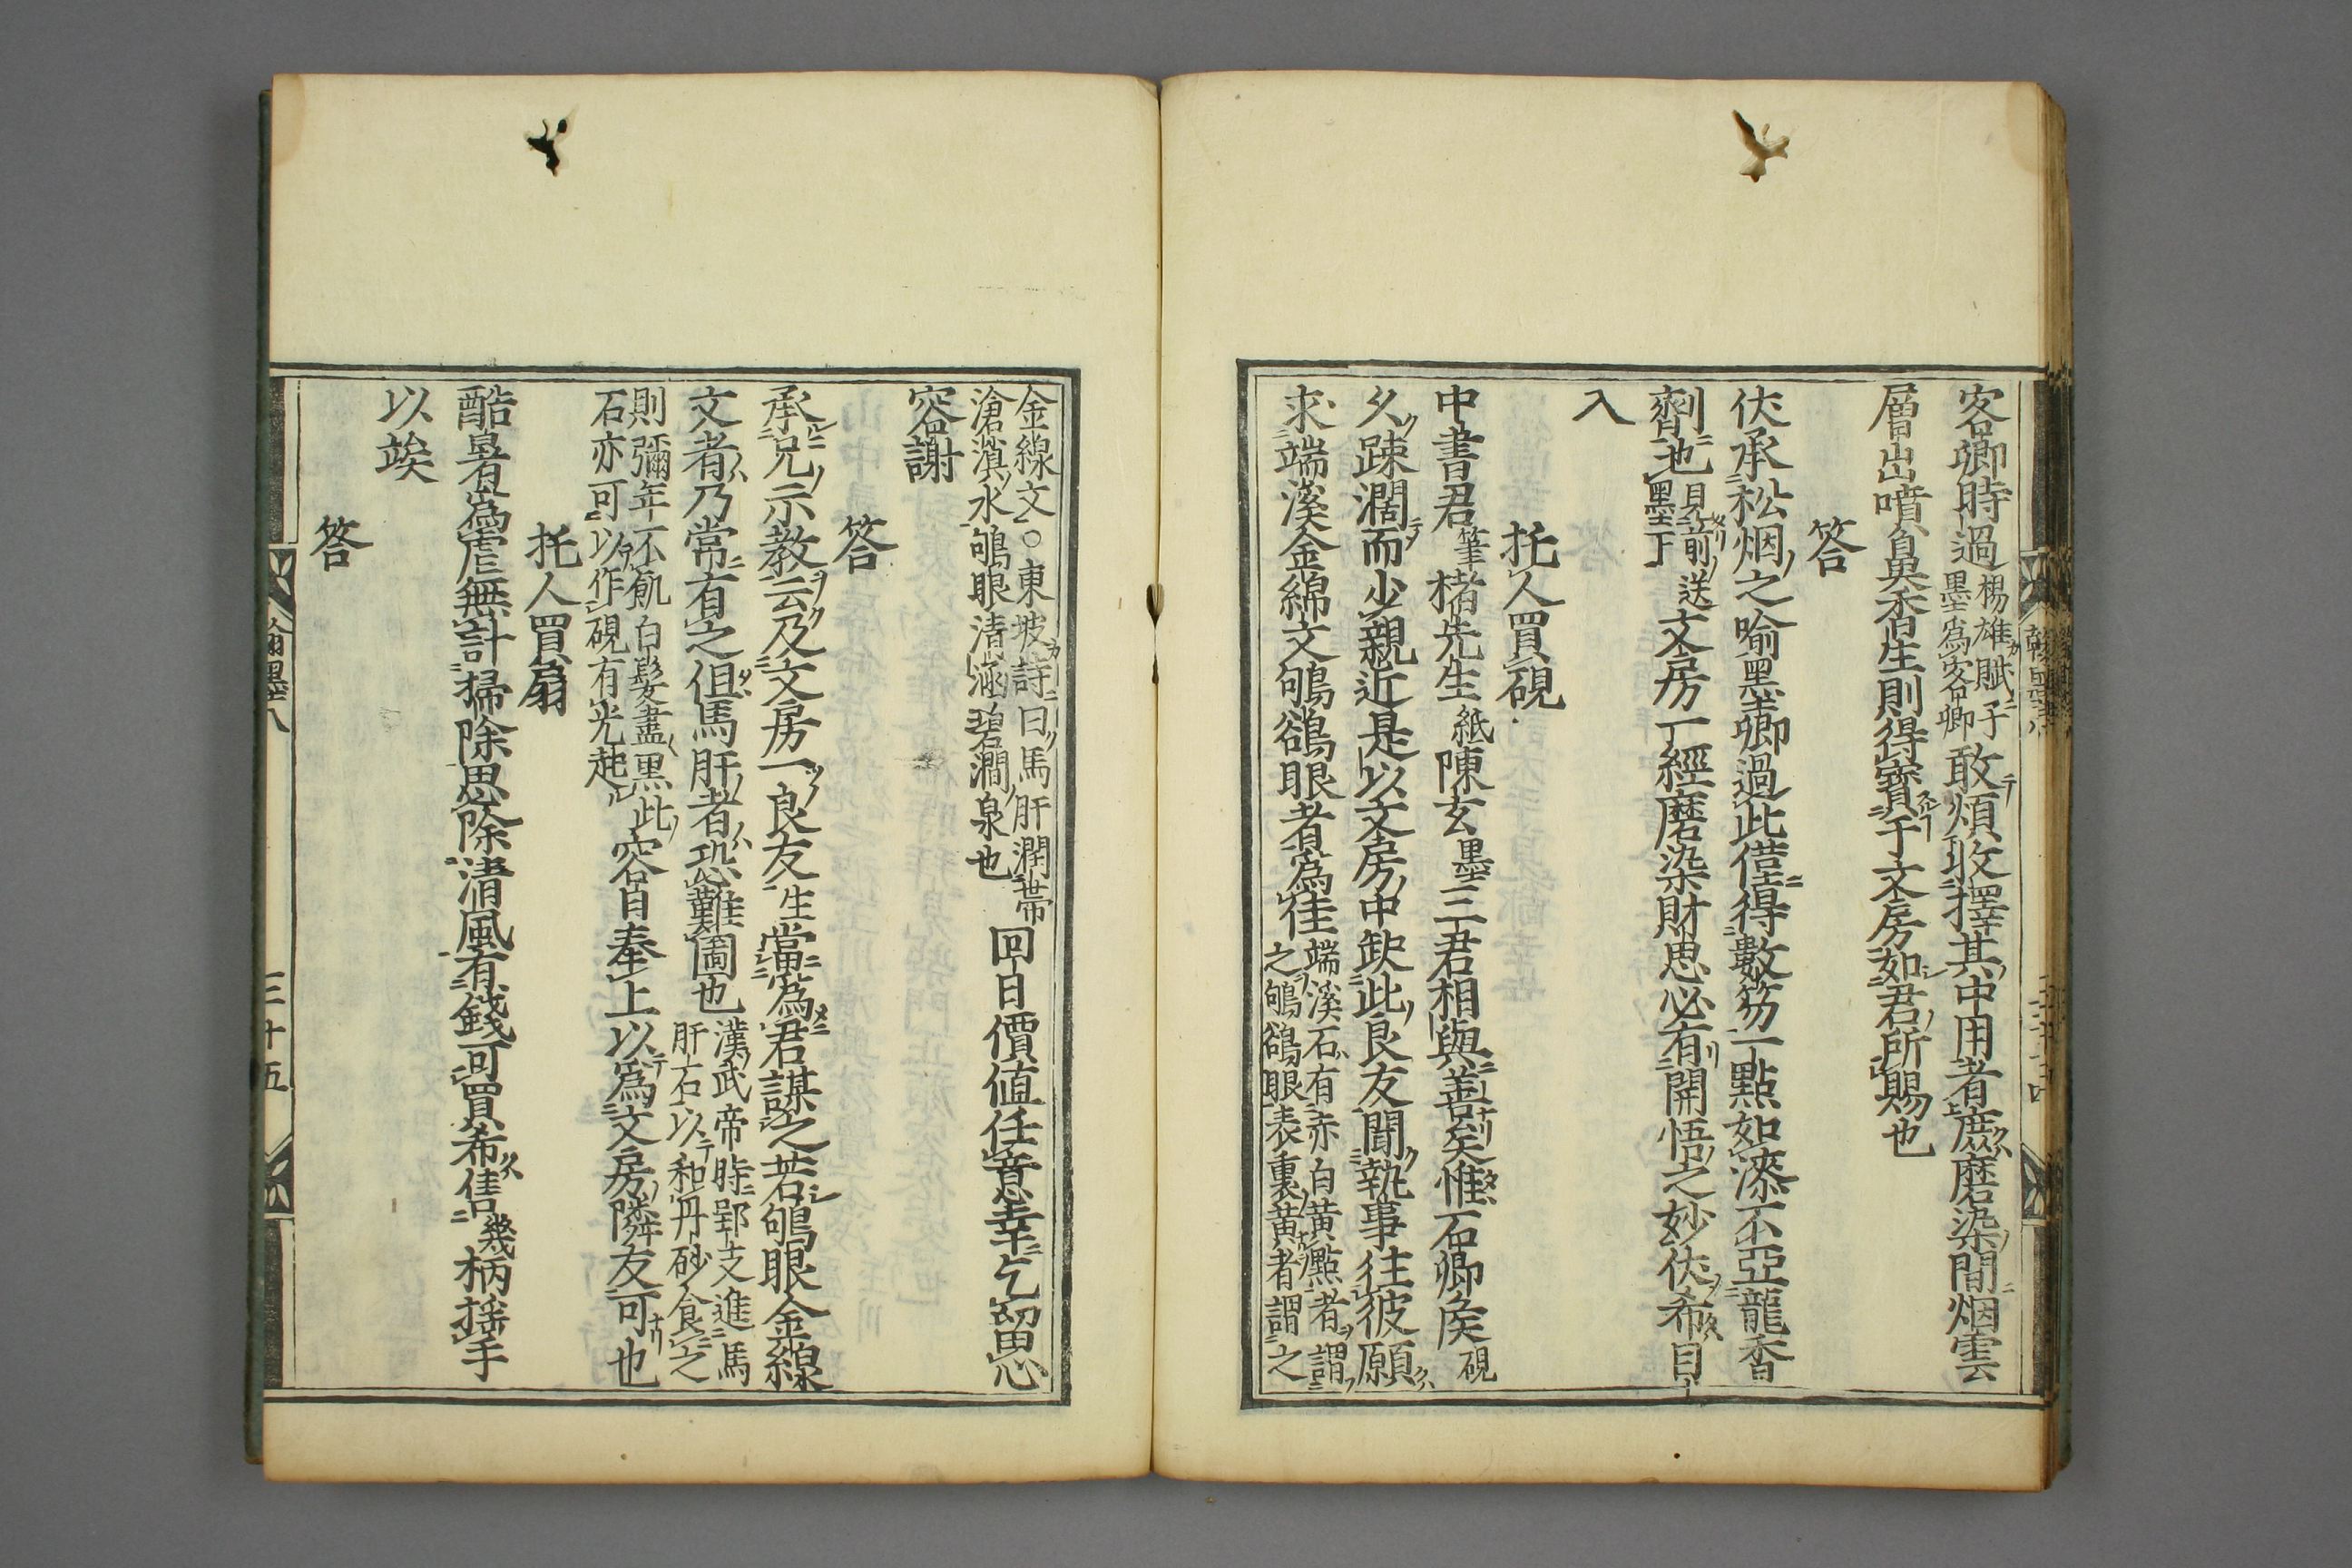 客卿時過楊雄賦子墨爲客卿敢煩收擇其中用者庶磨染間烟雲
層出噴鼻香生則得寳于文房如君所賜也
答
伏承松烟之喻黑卿過此僅得數笏一點如漆不亞龍香
劑也見前送墨丁文房一經磨染財思必有開悟之妙伏希目
入
托人買硯
中書君筆楮先生紙陳玄墨三君相與善矣惟石卿矦硯
久踈濶而少親近是以文房中缺此良友聞執事往彼願
求端溪金線文鴝鵒眼者爲佳端溪石有赤白黄㸃者謂之鴝鵒眼表裏黄者謂之
金線文○東坡詩曰馬肝潤帯滄溟水鴝眼清涵碧澗泉也回日價値任意幸乞留思
容謝
答
承兄示教云及文房一良友生當爲君謀之若鴝眼金線
文者乃常有之但馬肝者恐難圖也漢武帝時郢支進馬肝石以和丹砂食之
則彌年不飢白髮盡黒此石亦可以作硯有光起容目奉上以爲文房隣友可也
托人買扇
酷暑爲虐無計掃除思除清風有錢可買希借幾柄揺手
以竢
答
翰墨八
三十五